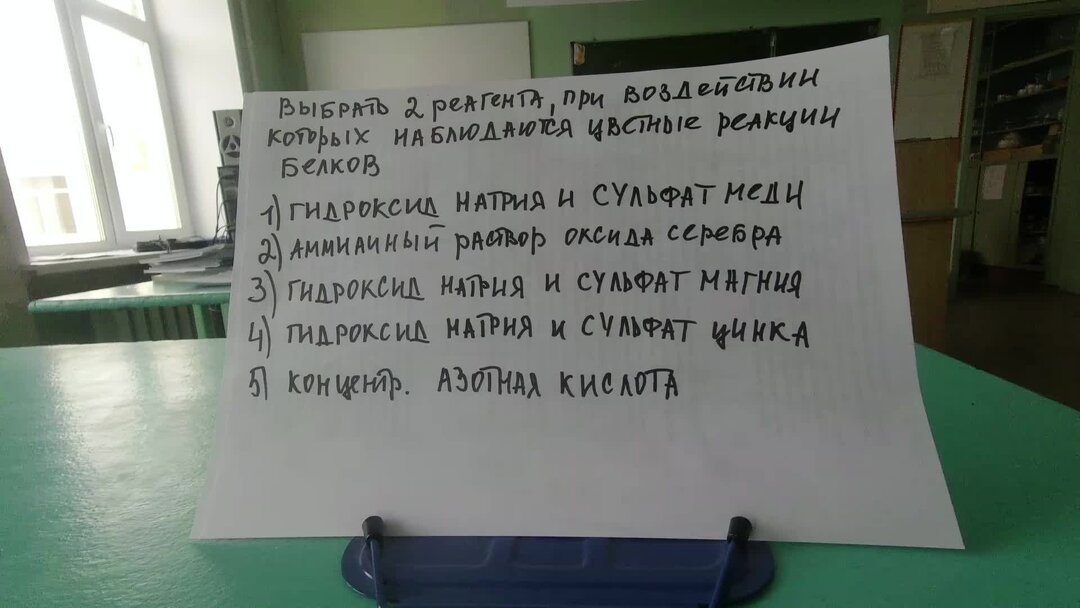 Выбрать 2 реагента, при воздействии
которых наблюдаются цветные реакции
белков
1) гидроксид натрия и сульфат меди
2) аммиачный раствор оксида серебра
3) гидроксид натрия и сульфат магния
4) гидроксид натрия и сульфат цинка
5) концентр. азотная кислота